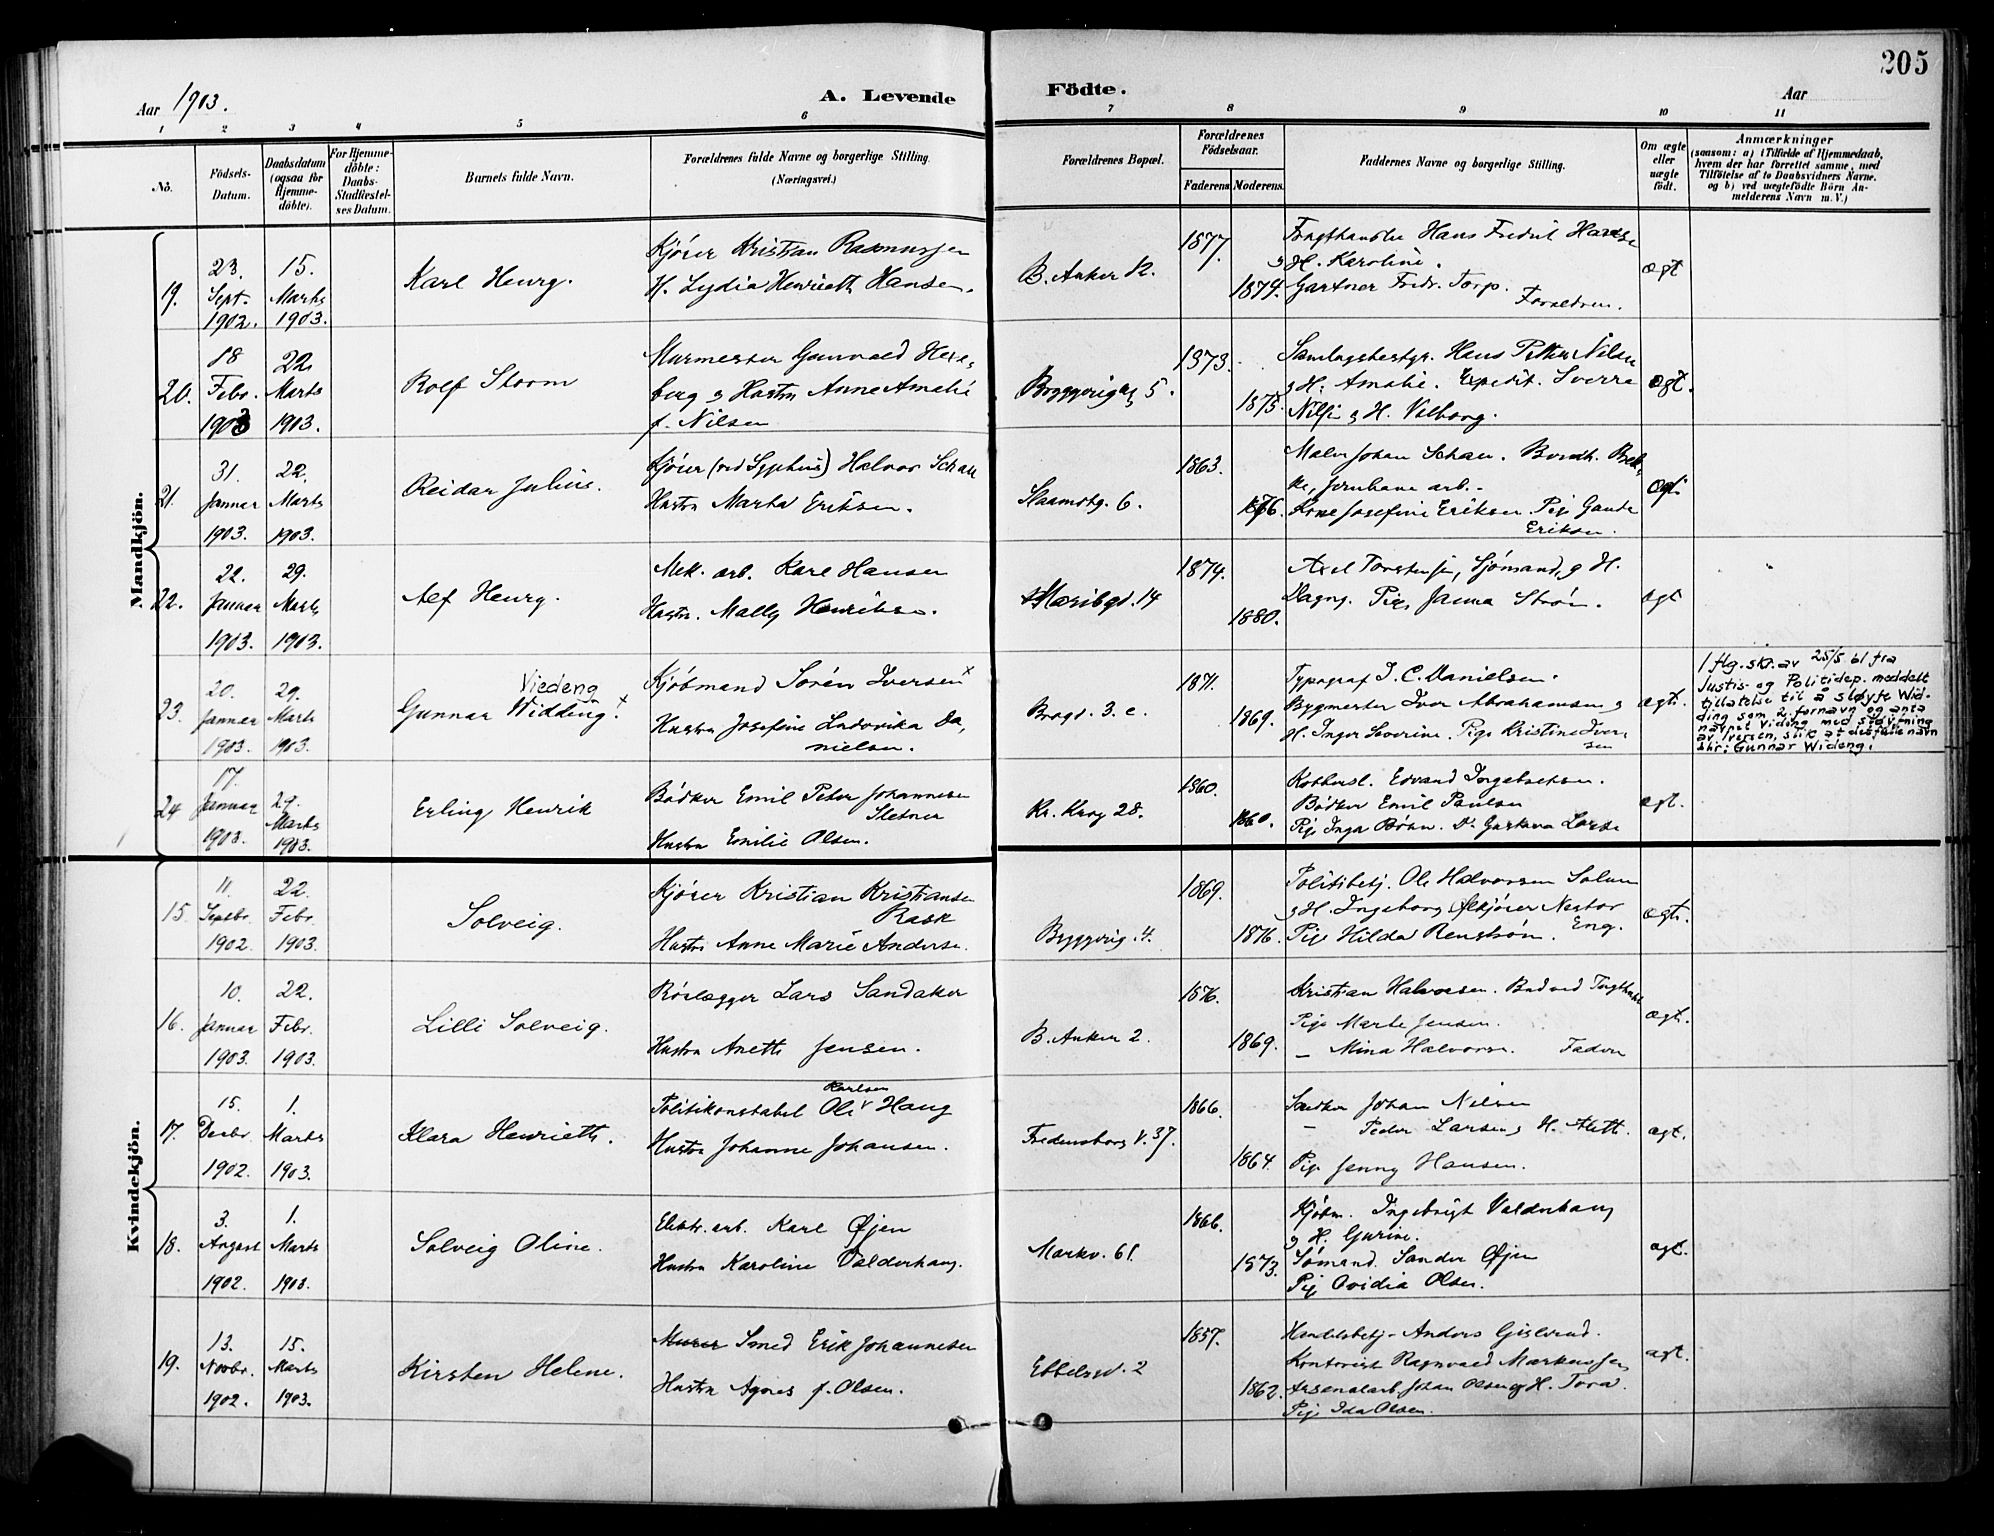 205
Aar 1903.
A. Levende Födte.
Aar
1 2 3 4 5 6 7 8 9 10 11
No.
Födsels-Datum.
Daabsdatum (ogsaa for Hjemme-döbte).
For Hjemme-döbte: Daabs-Stadfæstel-ses Datum.
Barnets fulde Navn.
Forældrenes fulde Navne og borgerlige Stilling. (Næringsvei.)
Forældrenes Bopæl.
Forældrenes Födselsaar.
Faderens. Moderens.
Faddernes Navne og borgerlige Stilling.
Om ægte eller uægte födt.
Anmærkninger
(saasom: a) i Tilfælde af Hjemmedaab, hvem der har forrettet samme, med Tilföielse af to Daabsvidners Navne, og b) ved uægtefödte Börn An-melderens Navn m. V.)
Mandkjön.
19.
23. Sept. 1902.
15. Marts 1903.
Karl Henry.
Kjører Kristian Rasmussen
H. Lydia Henriette Hansen.
B. Anker 12.
1877.
1879.
Hans Fredrik Hansen
& H. Karoline.
Gartner Fredr. Torp.
Forældrene.
ægt
20.
18 Febr. 1903
22 Marts 1903.
Rolf Storm
Murmester Gunvald
berg & Hustru Anne Amalie
f. Nilsen
5.
1873.
1875.
Samlagsbestyr. Hans Petter Nilsen
& H. Amalie. Expedit. Sverre
& H. Valborg.
ægt.
21.
31. Januar 1903.
22. Marts 1903.
Reidar Julius.
Kjører Halvor Schau
Hustru Marta Eriksen.
6.
1863.
1876.
Maler Johan Schau.
Jernbane arb.
Kone Josefine Eriksen. Pige
Eriksen.
ægt.
22.
22. Januar 1903.
29. Marts 1903.
Alf Henry.
Mek. arb. Karl Hansen
Hustru. Mally Henriksen.
Maribgd. 14
1874.
1880.
Axel Torstensen, Sjømand, & H.
Dagny. Pige Janna Strøm.
ægt
23.
20. Januar 1903.
29. Marts 1903.
Viedeng
Gunnar Widding. x
Kjøbmand Sören Iversen x
Hustru Josefine Ludovika Da-
nielsen.
Brogd. 3. c.
1871.
1869.
Typograf J. C. Danielsen.
Bygmester Iver Abrahamsen &
H. Inger Severine. Pige Kristine Iver-
sen
ægt.
I flg. skr. av 25/5 61 fra
Justis- og Politidep. meddelt
tillatelse til å sløyfe Wid-
ding som 2. fornavn og anta
navnet Viding med sløyfning
av Iversen, slik at det fulle navn
skr: Gunnar Wideng.
24
17. Januar 1903.
29. Marts 1903.
Erling Henrik
Bödker Emil Peter Johannesen
Sletner
Hustru Emilie Olsen.
Kr. Krog 28.
1860.
1860.
Edvard Ingebretsen.
Bödker Emil Paulsen
Pige Inga Böhn. Do. Gustava Larsen
ægt.
Kvindekjön.
15.
11. Septbr. 1902.
22. Febr. 1903.
Solveig.
Kjører Kristian Kristiansen
Rask
Hustru Anne Marie Andersen.
Byggverig. 4.
1869.
1876.
Politibetj. Ole Halvorsen Solum
& H. Ingeborg. Nestor
Eng.
Pige Hilda Renstrøm.
ægt.
16.
10. Januar 1903.
22. Febr. 1903.
Lilli Solveig.
Rörlægger Lars Sandaker
Hustru Anette Jensen.
B. Anker 2.
1876.
1869.
Kristian Halvorsen. Bud ved
Pige Marte Jensen.
– Mina Halvorsen. Faderen
ægt.
17.
15. Decbr. 1902
1. Marts 1903.
Klara Henriette.
Karlsen
Politikonstabel Ole Haug
Hustru Johanne Johansen.
Fredensborg V. 37.
1866.
1864.
Snedker Johan Nilsen
– Peder Larsen & H. Alette.
Pige Jenny Hansen.
ægt.
18.
3. August 1902.
1. Marts 1903.
Solveig Oline.
Elektr. arb. Karl Øjen
Hustru Karoline Valderhaug.
Markv. 61.
1866.
1873.
Kjøbm. Ingebrigt Valderhaug
& H. Gurine.
Sømand. Sander Øjen
Pige Ovidia Olsen.
ægt.
19.
13. Novbr. 1902.
15. Marts 1903.
Kirsten Helene.
Murer Smed Erik Johannesen
Hustru Agnes f. Olsen.
Ebbelsgd. 2
1857.
1862.
Handelsbetj. Anders Gislerud.
Kontorist Ragnvald Markussen
Arsenalarb. Johan Olsen & H. Tora.
Pige Ida Olsen.
ægt.